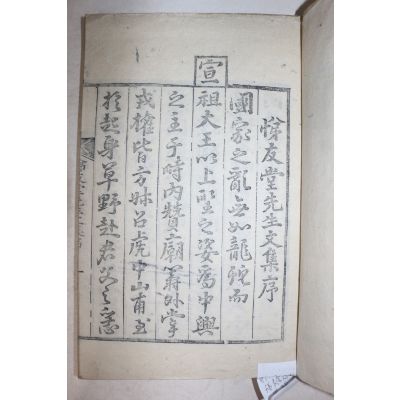 悌友堂先生文集序
國家之亂無如龍蛇而
宣
祖大王以上聖之姿爲中興
之主于時內贊廟籌外掌
戎權皆方叔召虎中山甫至
於起身草野赴君父之急